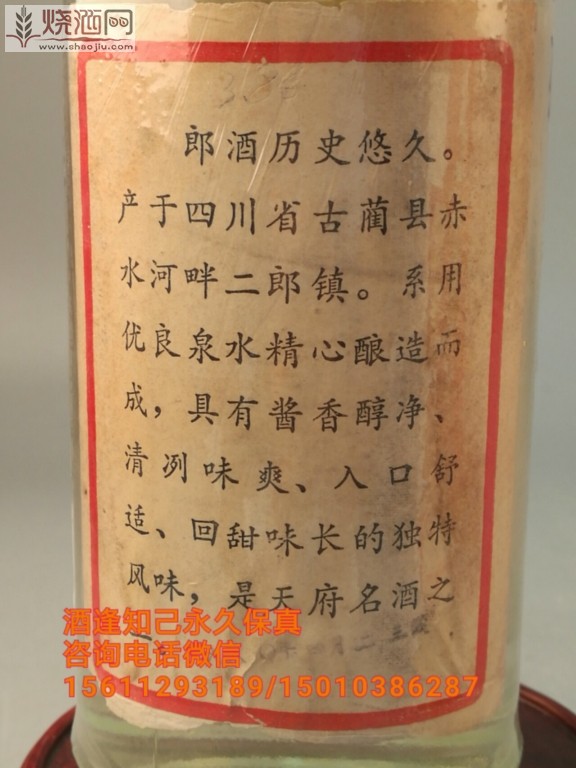 烧酒网
www.shaojiu.com
郎酒历史悠久。
产于四川省古蔺县赤
水河畔二郎镇。系用
优良泉水精心酿造而
成，具有酱香醇净、
清冽味爽、入口舒
适、回甜味长的独特
风味，是天府名酒之
一。
酒逢知己永久保真
咨询电话微信
15611293189/15010386287